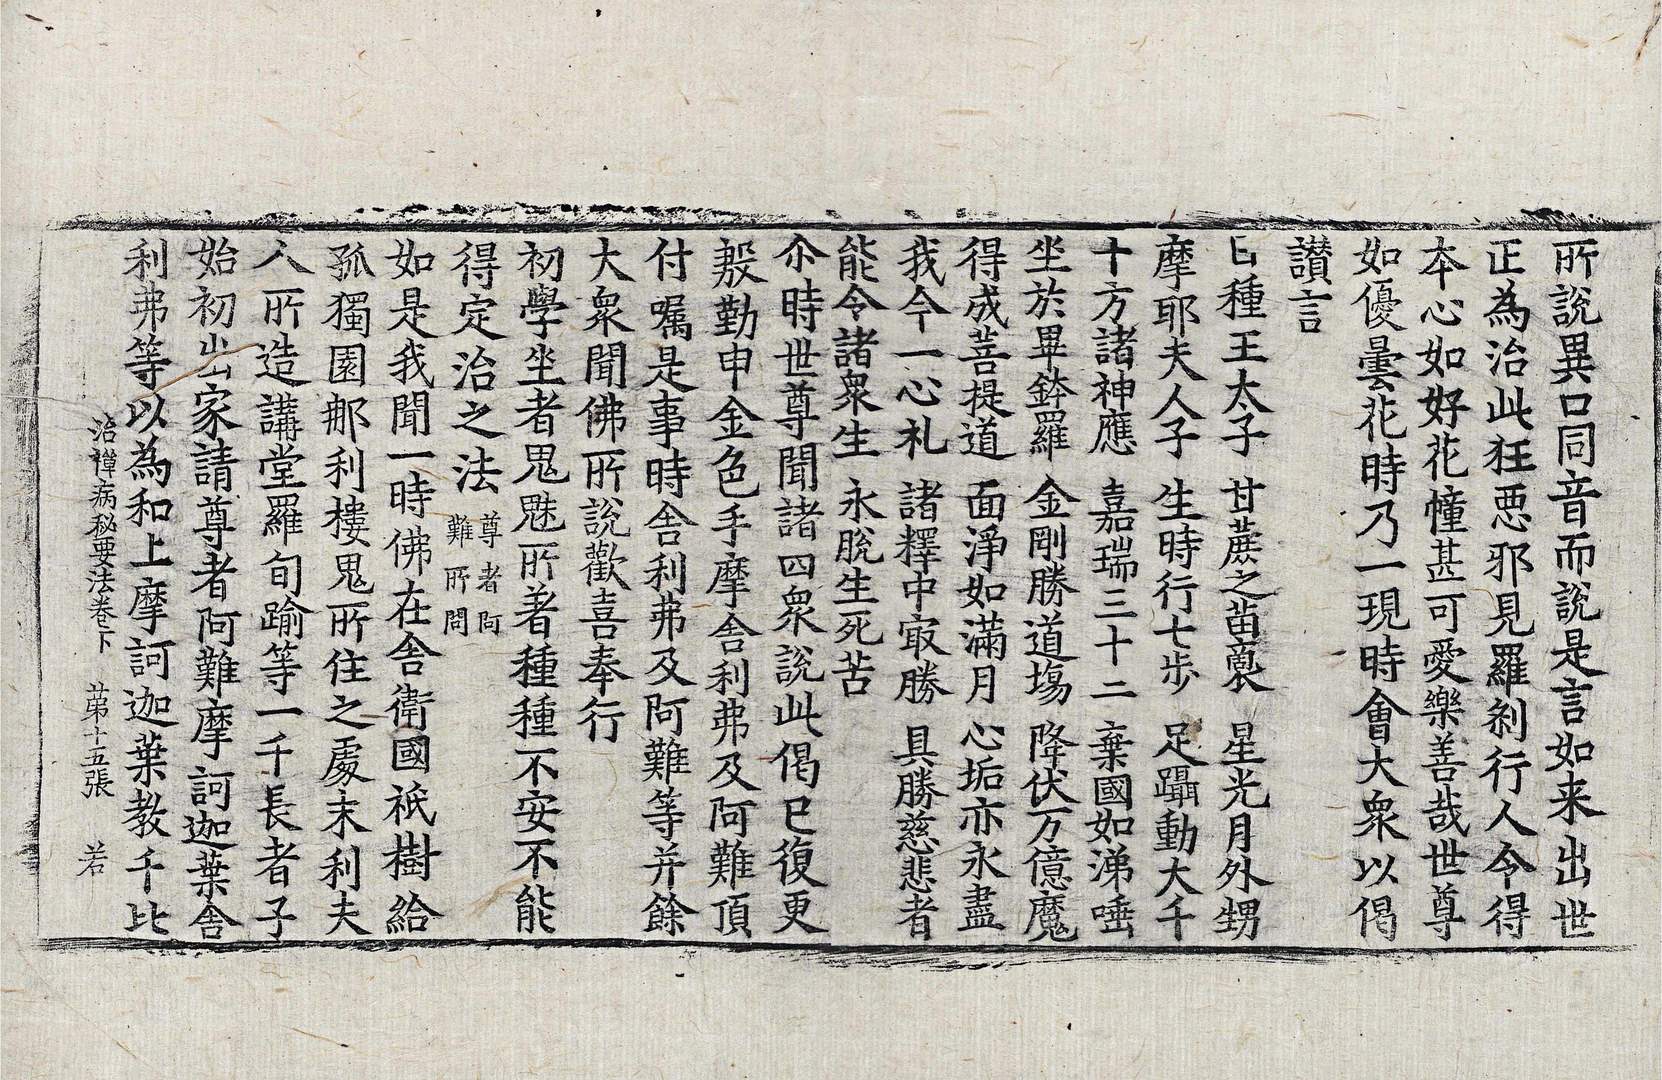 所說異口同音而說是言如来出世
正為治此狂悪邪見羅刹行人令得
本心如好花幢甚可愛樂善哉世尊
如優曇花時乃一現時會大衆以偈
讃言
日種王太子　甘蔗之苗裔　星光月外甥
摩耶夫人子　生時行七步　足躡動大千
十方諸神應　嘉瑞三十二　棄國如涕唾
坐於畢鉢羅　金剛勝道場　降伏万億魔
得成菩提道　面淨如滿月　心垢亦永盡
我今一心礼　諸釋中㝡勝　具勝慈悲者
能令諸衆生　永脫生死苦
尒時世尊聞諸四衆說此偈已復更
慇懃申金色手摩舍利弗及阿難頂
付囑是事時舍利弗及阿難等并餘
大衆聞佛所說歡喜奉行
初學坐者鬼魅所著種種不安不能
得定治之法 尊者阿難所問
如是我聞一時佛在舍衛國祇樹給
孤獨園那利樓鬼所住之處末利夫
人所造講堂羅旬踰等一千長者子
始初出家請尊者阿難摩訶迦葉舍
利弗等以為和上摩訶迦葉教千比
治禪病秘要法卷下　苐十五張　若